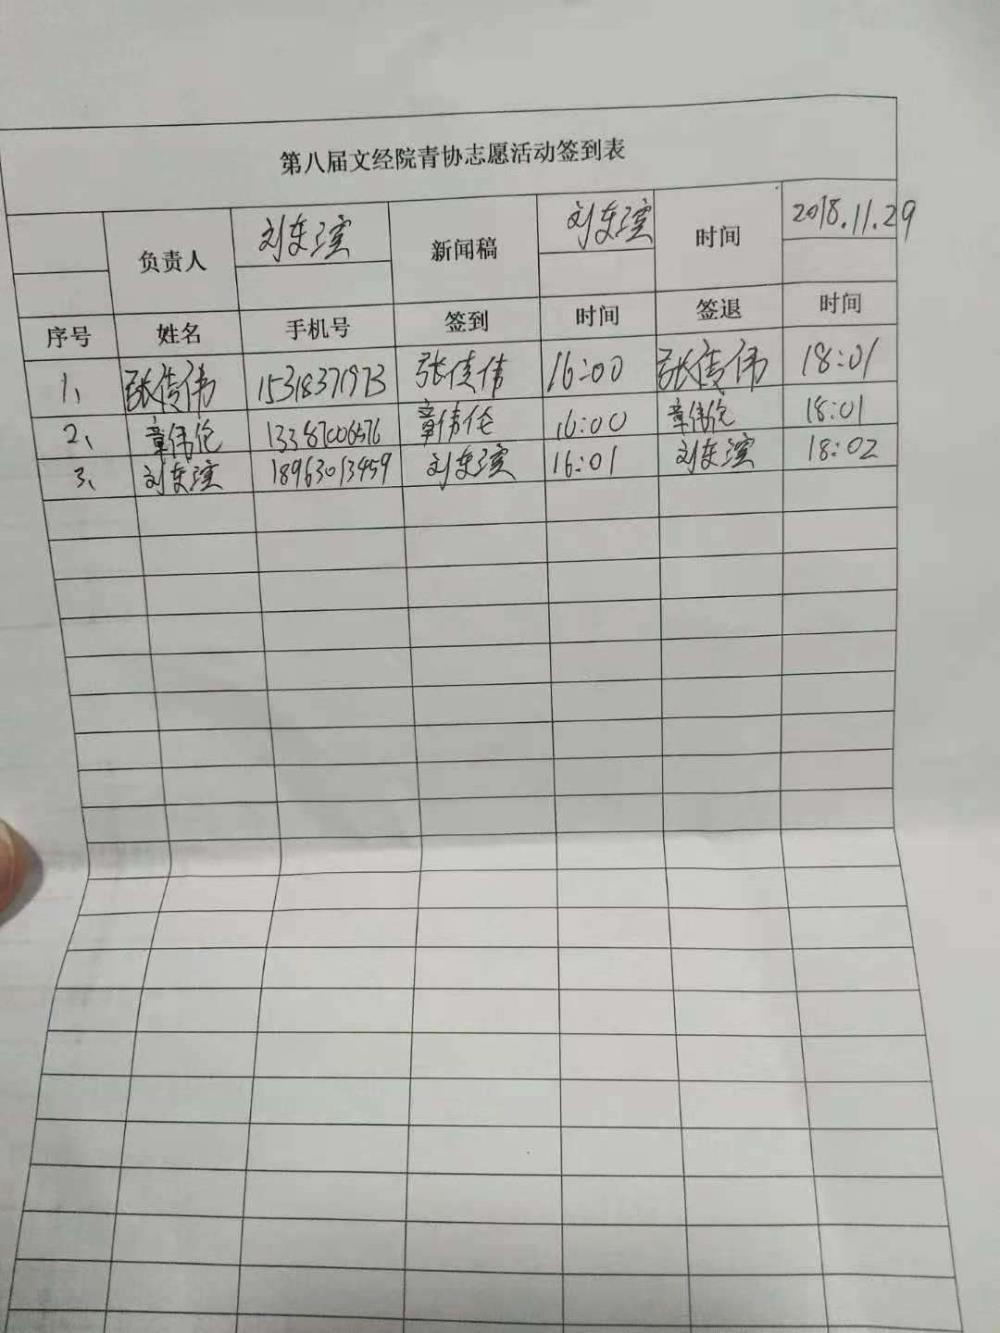 第八届文经院青协志愿活动签到表
负责人 刘东瀛 新闻稿 刘东瀛 时间 2018.11.29
序号 姓名 手机号 签到 时间 签退 时间
1、 张倩伟 15318371973 张倩伟 16:00 张倩伟 18:01
2、 章伟伦 章伟伦 16:00 章伟伦 18:01
3、 刘东瀛 18963013459 刘东瀛 16:01 刘东瀛 18:02